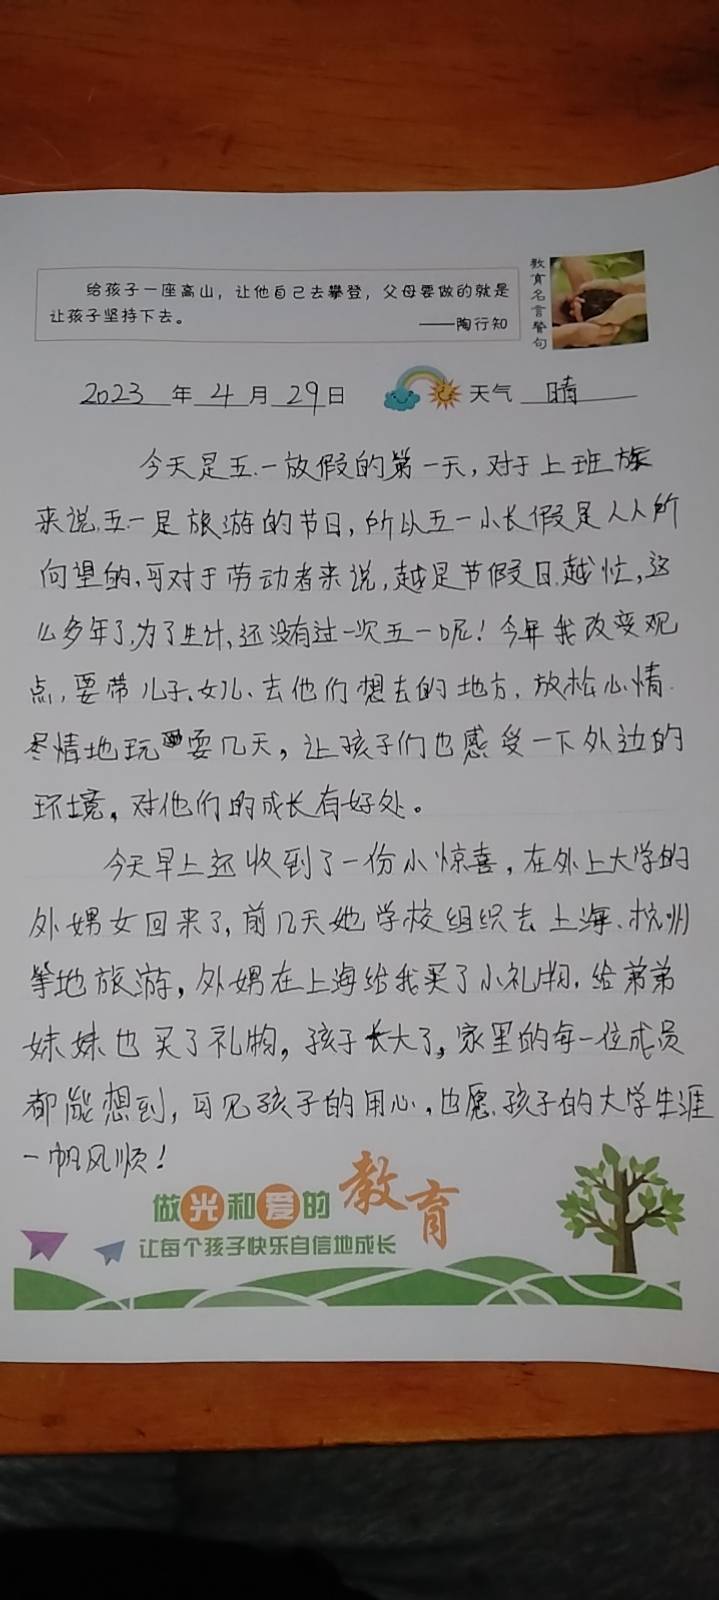 给孩子一座高山，让他自己去攀登，父母要做的就是
让孩子坚持下去。
——陶行知
教育名言警句
2023年4月29日 天气 晴
今天是五.一放假的第一天，对于上班族
来说,五一是旅游的节日，所以五一小长假是人人所
向望的,可对于劳动者来说,越是节假日,越忙,这
么多年了,为了生计,还没有过一次五一呢！今年我改变观
点,要带儿子、女儿、去他们想去的地方,放松心情.
尽情地玩耍几天，让孩子们也感受一下外边的
环境，对他们的成长有好处。
今天早上还收到了一份小惊喜，在外上大学的
外甥女回来了,前几天她学校组织去上海、杭州
等地旅游，外甥在上海给我买了小礼物，给弟弟
妹妹也买了礼物，孩子长大了，家里的每一位成员
都能想到，可见孩子的用心，也愿孩子的大学生涯
一帆风顺！
做光和爱的教育
让每个孩子快乐自信地成长